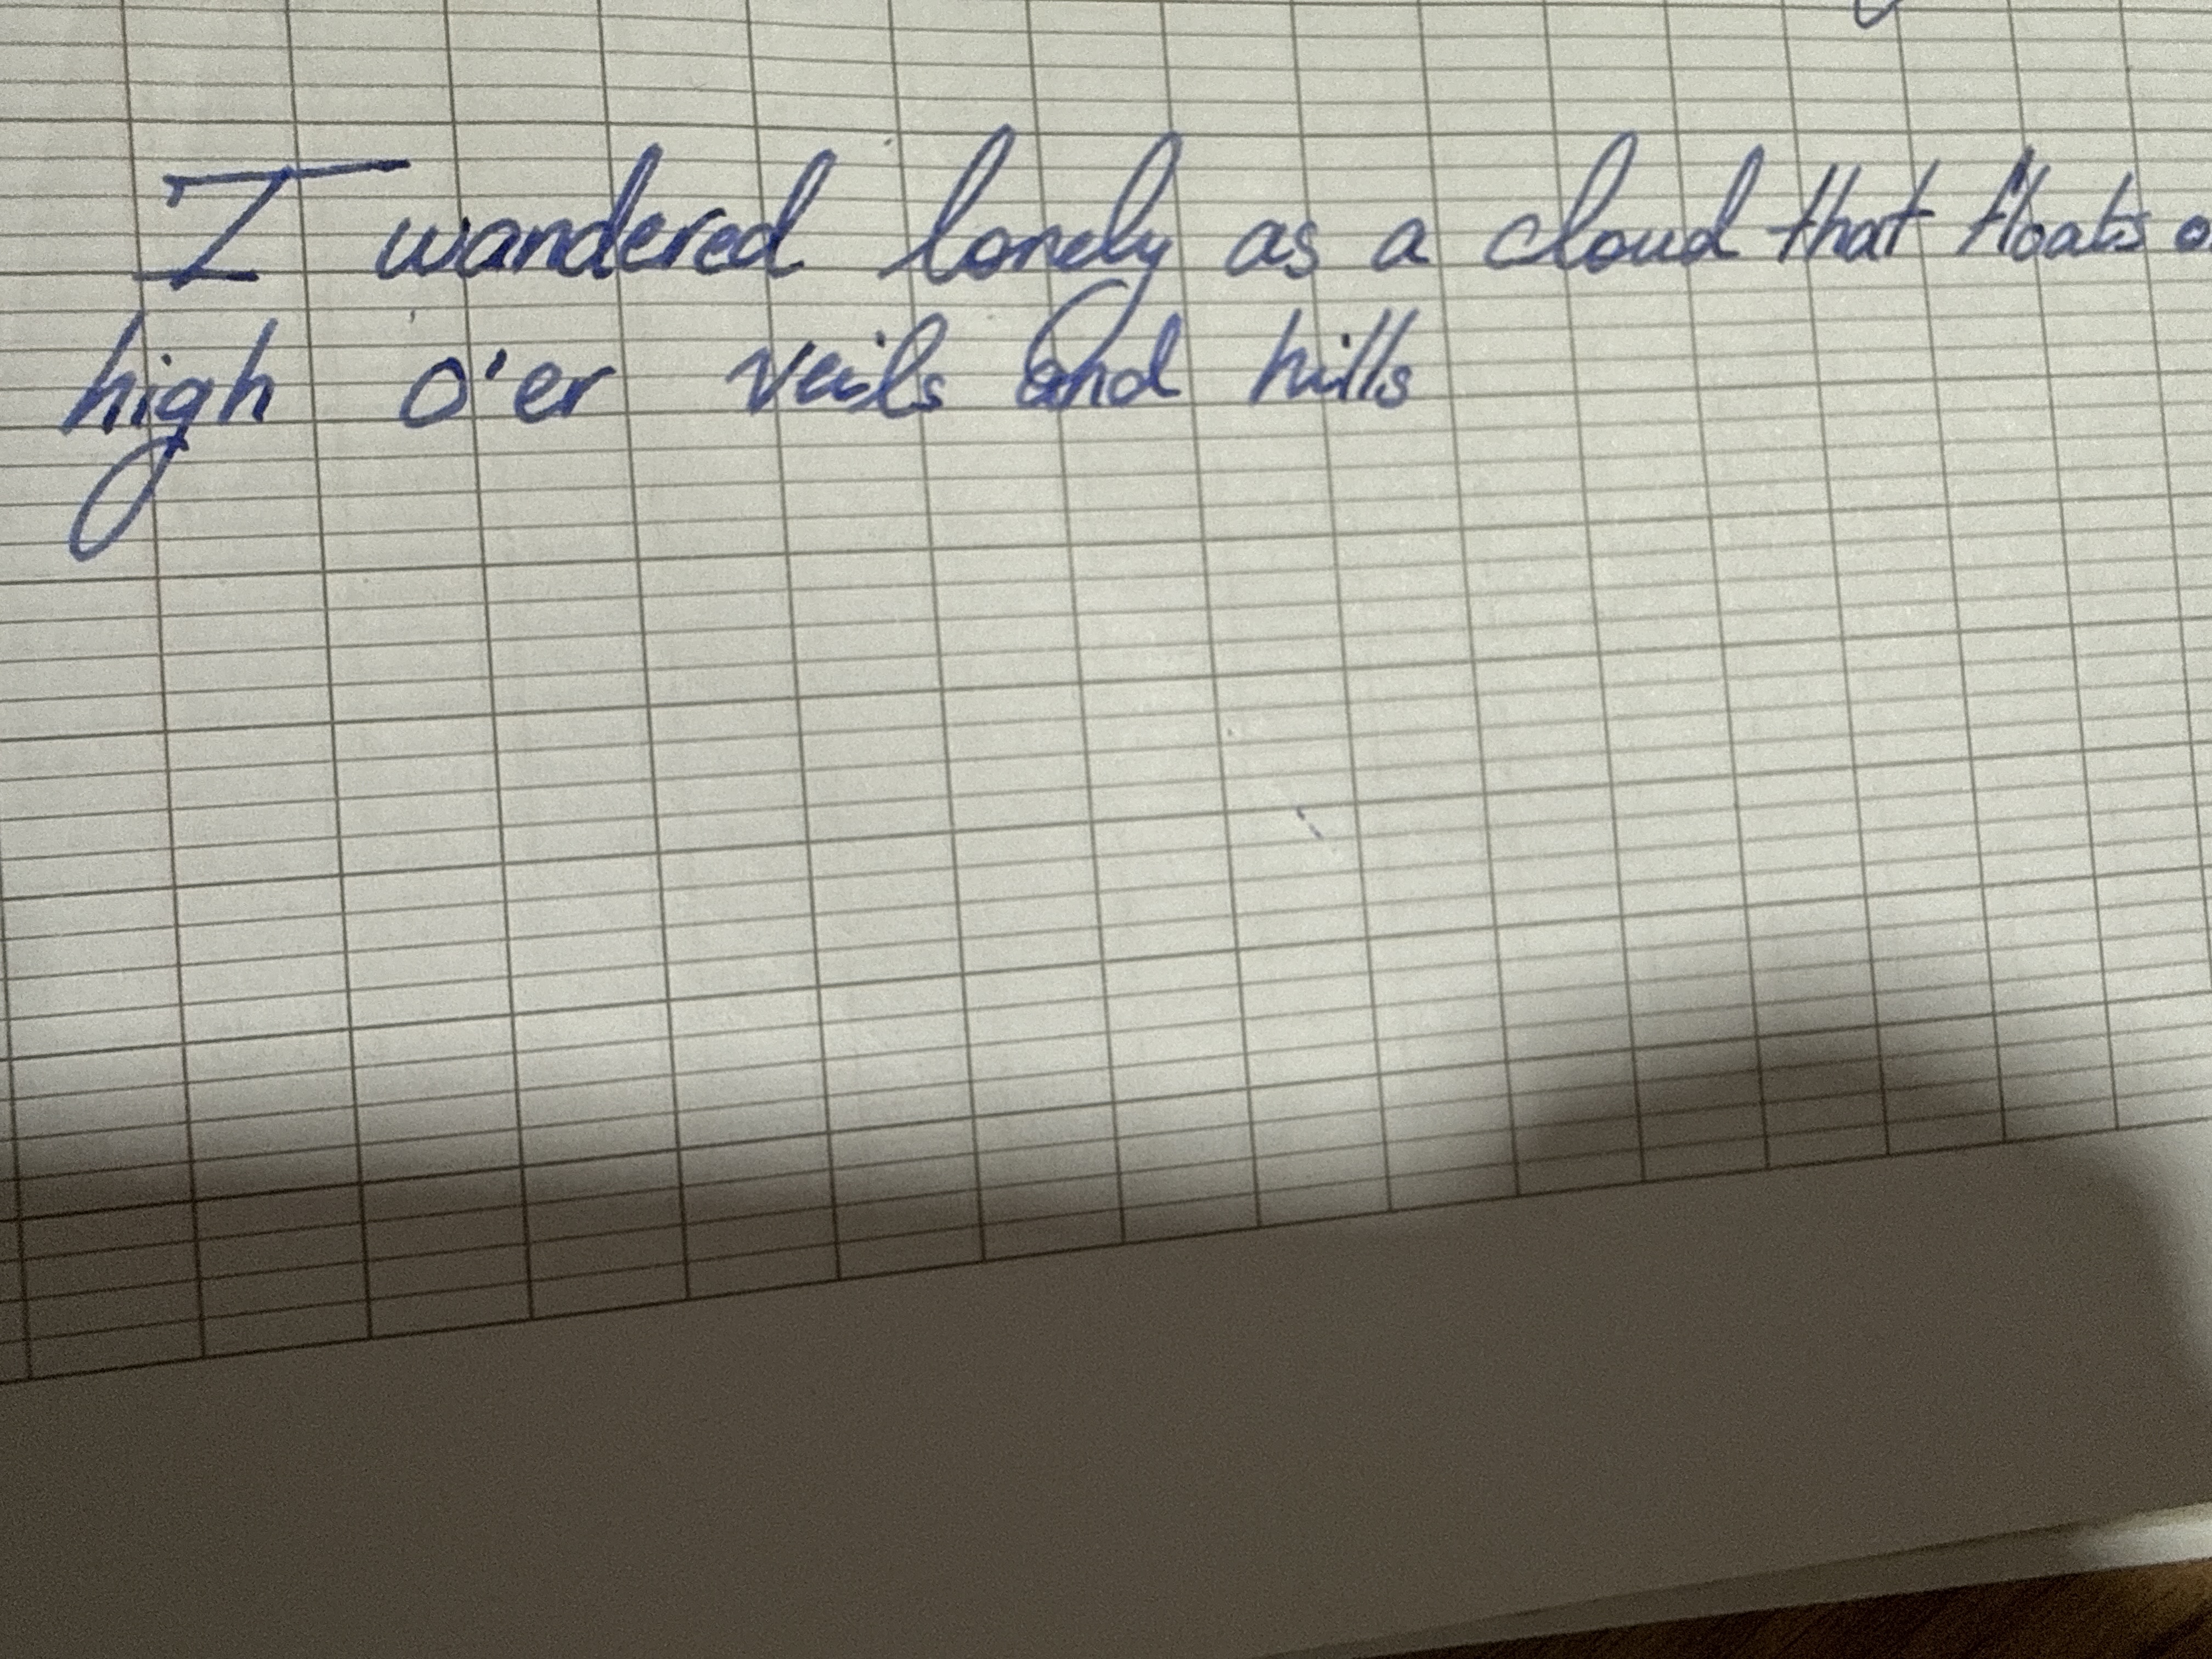 I wandered lonely as a cloud that floats
high o'er veils and hills